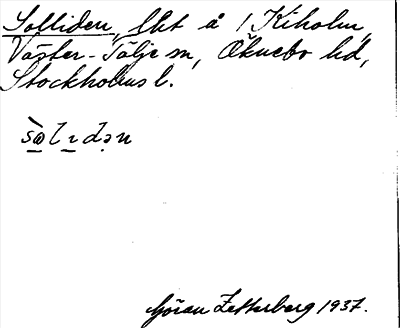 Solliden, lht å 1 Kiholm,
Väster-Tälje sn, Öknebo hd,
Stockholms l.
sɷ̀lɪdən
Göran Zetterberg 1937.